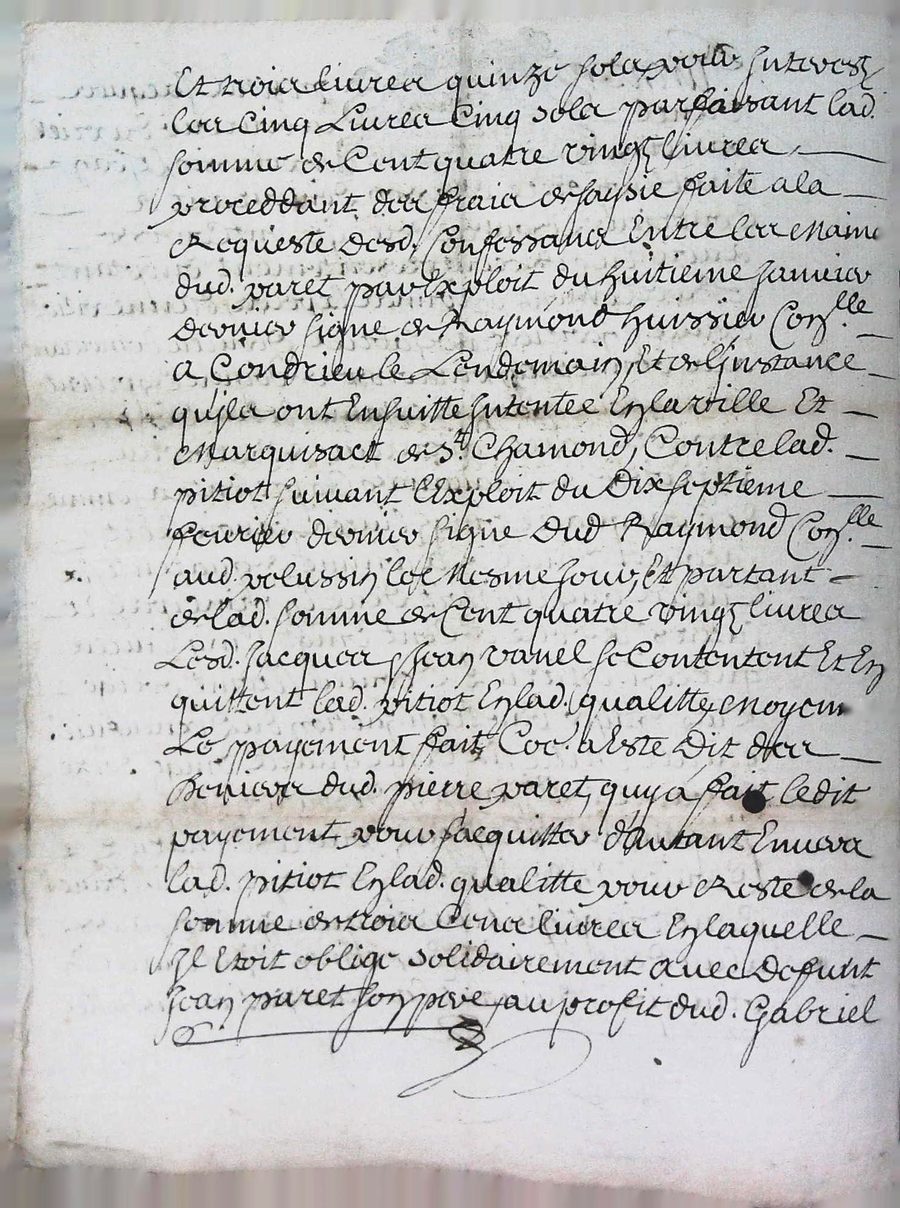 Et trois livres quinze sols pour Interest
les Cinq Livres Cinq sols parfaisant lad.
somme de Cent quatre vingt livres
proceddant des fraix de saysie faite a la
Requeste desd. Confessants Entre les Mains
dud. paret par Exploit du huitieme Janvier
dernier signe de Raymond huissier Con.lle
a Condrieu le Lendemain, Et de l'Instance
qu'ils ont Ensuitte Intentée En la ville Et
Marquisact de St. Chamond, Contre lad.
pitiot suivant l'Exploit du Dix septieme
fevrier dernier signe Dud Raymond Con.lle
aud. pelussin le Mesme Jour, Et partant
de lad. somme de Cent quatre vingt livres
Lesd. Jacques & Jean vanel se Contentent Et En
quittent lad. pitiot En lad. qualitte, Moyen
Le payement fait, Coe. a Esté Dit des
Deniers dud. pierre paret, quy a fait ledit
payement pour s'acquitter d'autant Envers
lad. pitiot En lad. qualitte pour Reste de la
somme de trois Cens livres En laquelle
Il Etoit obligé solidairement avec Defunt
Jean paret son pere, au profit dud. Gabriel